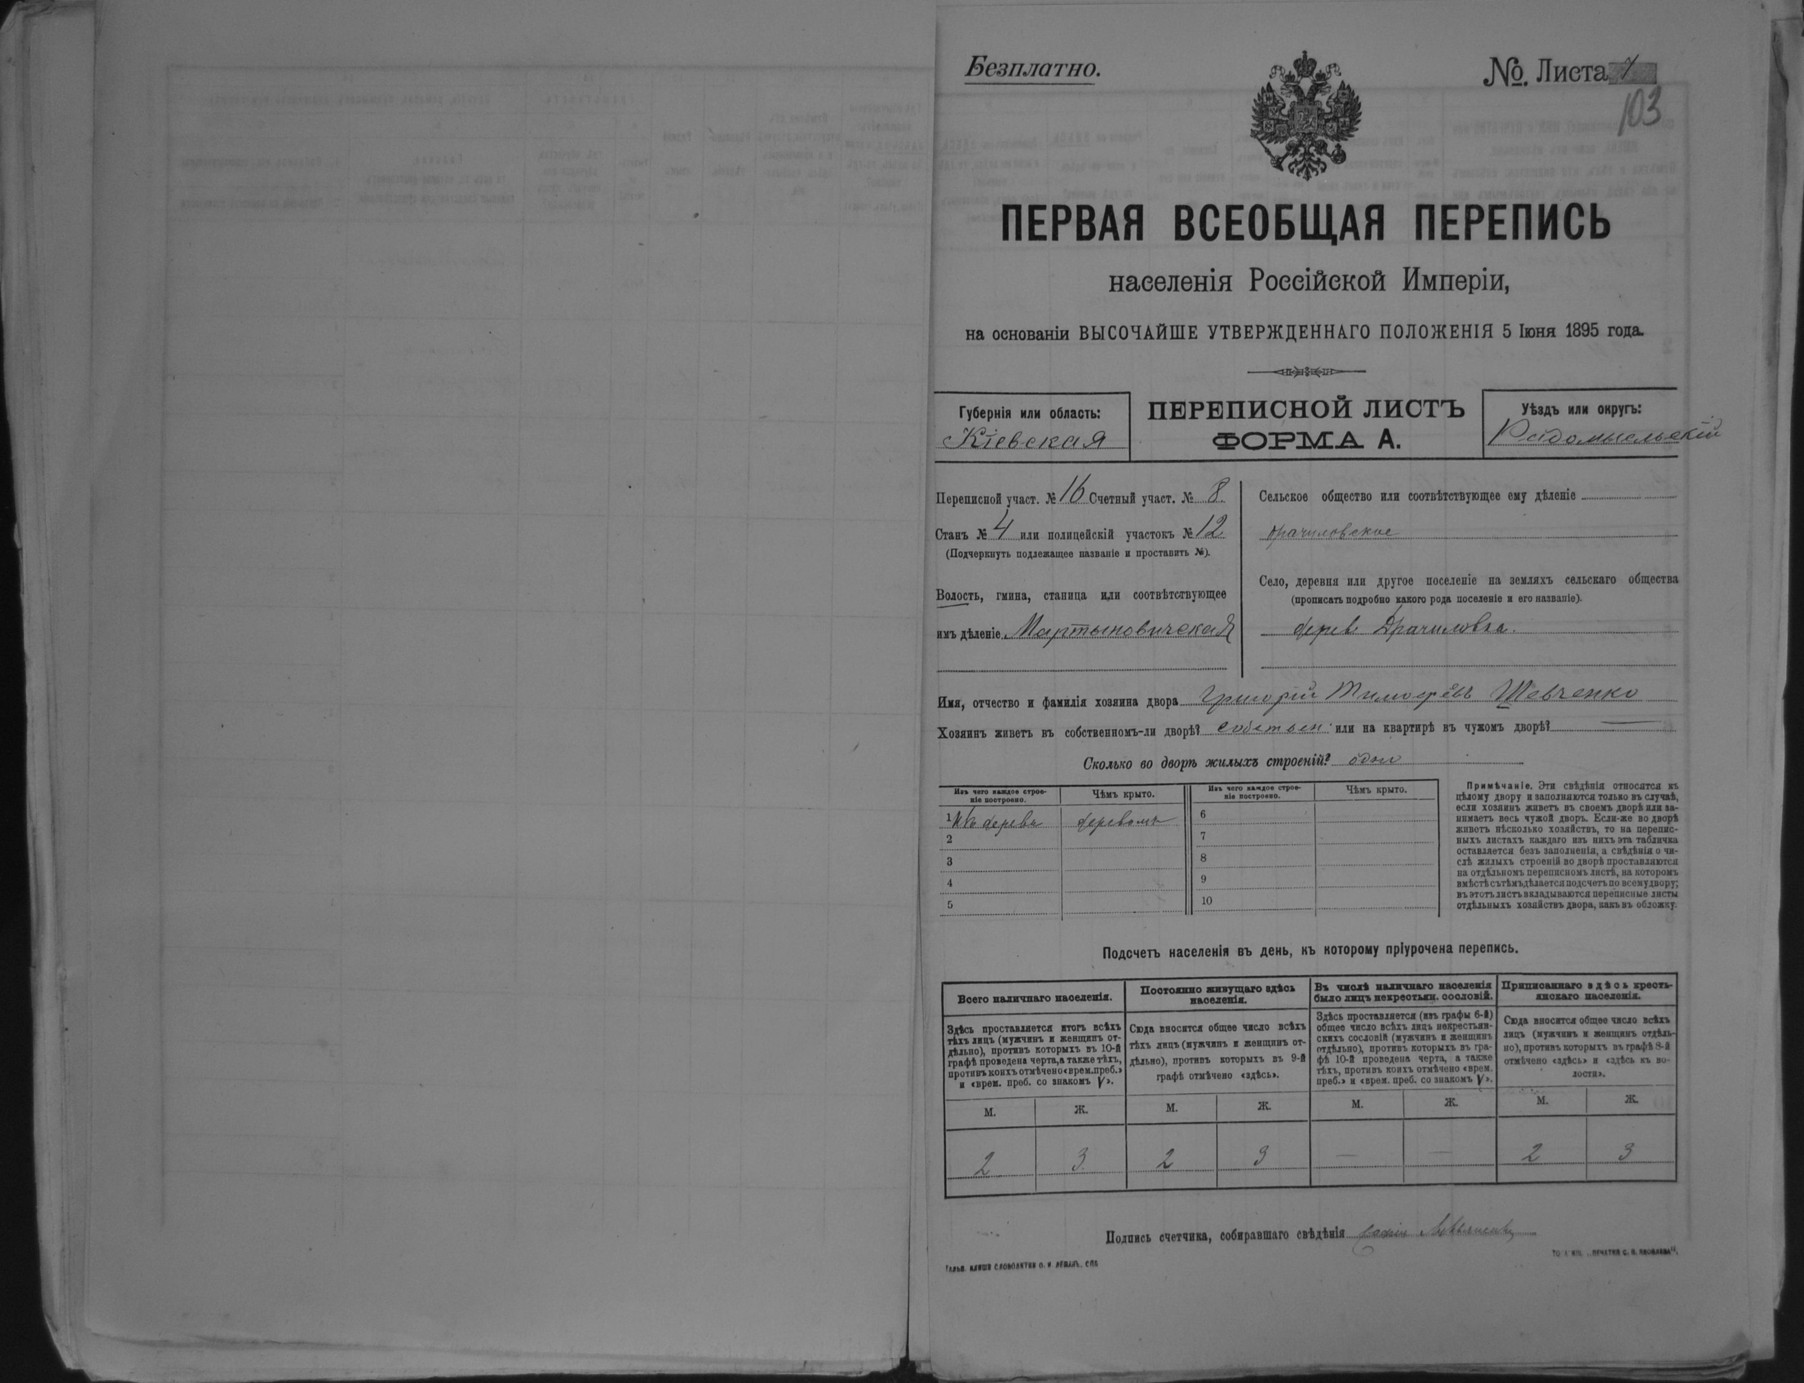 Безплатно.
№. Листа 1
103
ПЕРВАЯ ВСЕОБЩАЯ ПЕРЕПИСЬ
населенія Россійской Имперіи,
на основаніи ВЫСОЧАЙШЕ УТВЕРЖДЕННАГО ПОЛОЖЕНІЯ 5 Іюня 1895 года.
Губернія или область:
Кіевская
ПЕРЕПИСНОЙ ЛИСТЪ
ФОРМА А.
Уѣздъ или округъ:
Радомысльскій
Переписной участ. № 16 Счетный участ. № 8.
Станъ № 4 или полицейскій участокъ № 12
(Подчеркнуть подлежащее названіе и проставить №).
Волость, гмина, станица или соотвѣтствующее
имъ дѣленіе Мартыновичская
Сельское общество или соотвѣтствующее ему дѣленіе
Драчиловское
Село, деревня или другое поселеніе на земляхъ сельскаго общества
(прописать подробно какого рода поселеніе и его названіе).
дерев Драчиловка.
Имя, отчество и фамилія хозяина двора Григорій Тимофѣевъ Шевченко
Хозяинъ живетъ въ собственномъ-ли дворѣ? собствен. или на квартирѣ въ чужомъ дворѣ? —
Сколько во дворѣ жилыхъ строеній? один
Изъ чего каждое строе-
ніе построено.
Чѣмъ крыто.
Изъ чего каждое строе-
ніе построено.
Чѣмъ крыто.
1 Изъ дерева деревомъ
2
3
4
5
6
7
8
9
10
Примѣчаніе. Эти свѣдѣнія относятся къ
цѣлому двору и заполняются только въ случаѣ,
если хозяинъ живетъ въ своемъ дворѣ или за-
нимаетъ весь чужой дворъ. Если-же во дворѣ
живетъ нѣсколько хозяйствъ, то на перепис-
ныхъ листахъ каждаго изъ нихъ эта табличка
оставляется безъ заполненія, а свѣдѣнія о чи-
слѣ жилыхъ строеній во дворѣ проставляются
на отдѣльномъ переписномъ листѣ, на которомъ
вмѣстѣ съ тѣмъ дѣлается подсчетъ по всему двору;
въ этотъ листъ вкладываются переписные листы
отдѣльныхъ хозяйствъ двора, какъ въ обложку.
Подсчетъ населенія въ день, къ которому пріурочена перепись.
Всего наличнаго населенія.
Здѣсь проставляется итогъ всѣхъ
тѣхъ лицъ (мужчинъ и женщинъ от-
дѣльно), противъ которыхъ въ 10-й
графѣ проведена черта, а также тѣхъ,
противъ коихъ отмѣчено «врем. преб.»
и «врем. преб. со знакомъ V».
Постоянно живущаго здѣсь
населенія.
Сюда вносится общее число всѣхъ
тѣхъ лицъ (мужчинъ и женщинъ от-
дѣльно), противъ которыхъ въ 9-й
графѣ отмѣчено «здѣсь».
Въ числѣ наличнаго населенія
было лицъ некрестьян. сословій.
Здѣсь проставляется (изъ графы 6-й)
общее число всѣхъ лицъ некрестьян-
скихъ сословій (мужчинъ и женщинъ
отдѣльно), противъ которыхъ въ гра-
фѣ 10-й проведена черта, а также
тѣхъ, противъ коихъ отмѣчено «врем.
преб.» и «врем. преб. со знакомъ V».
Приписаннаго здѣсь кресть-
янскаго населенія.
Сюда вносится общее число всѣхъ
лицъ (мужчинъ и женщинъ отдѣль-
но), противъ которыхъ въ графѣ 8-й
отмѣчено «здѣсь» и «здѣсь въ во-
лости».
М. Ж. М. Ж. М. Ж. М. Ж.
2 3 2 3 — — 2 3
Подпись счетчика, собиравшаго свѣдѣнія